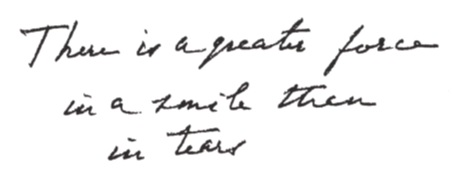 There is a greater force
in a smile then
in tears